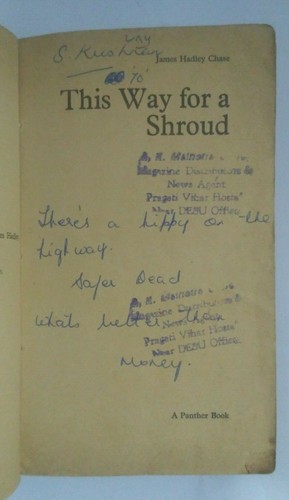 S. Krishna
James Hadley Chase
This Way for a
Shroud
Magazine Distributors &
News Agent
Pragati Vihar Hostel
Near DESU Office
There's a hippy on the
highway.
Safer Dead
Magazine Distributors &
News Agent
Pragati Vihar Hostel
Near DESU Office
whats better than
Money.
A Panther Book